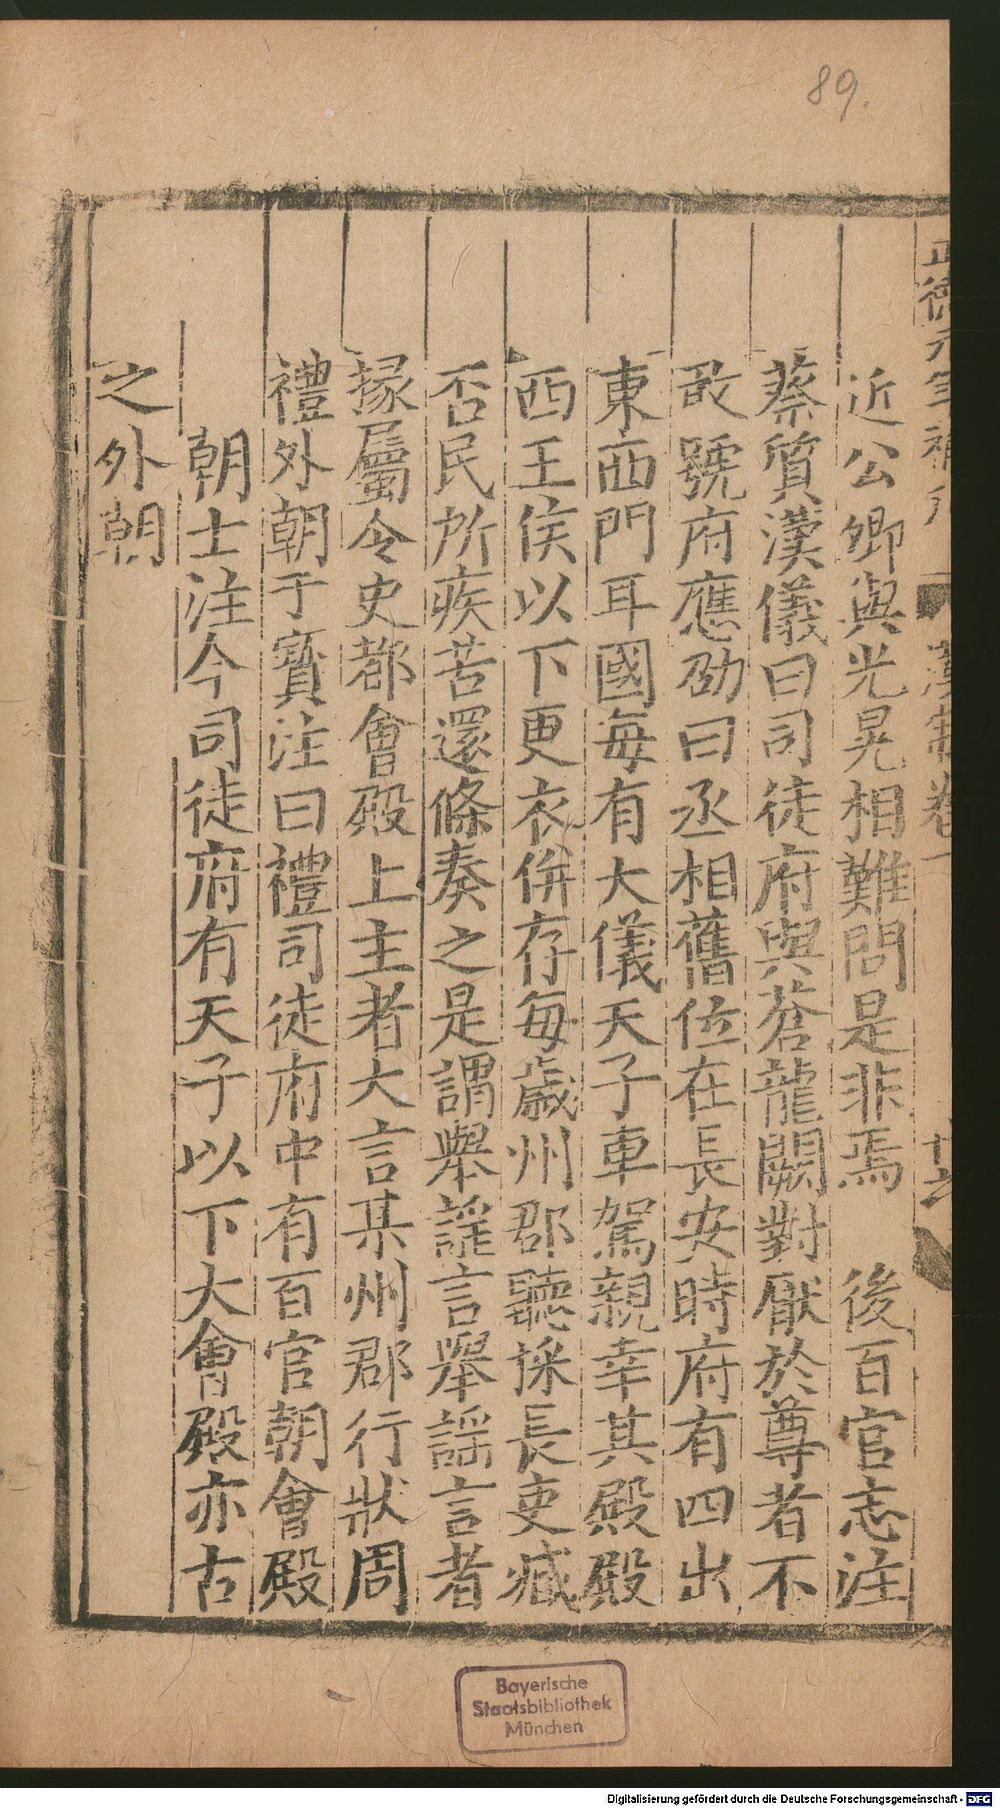 89.
正德元年補刊
漢制卷一
十六
近公卿與光晃相難問是非焉　後百官志注
蔡質漢儀曰司徒府與蒼龍闕對厭於尊者不
敢號府應劭曰丞相舊位在長安時府有四出
東西門耳國每有大儀天子車駕親幸其殿殿
西王侯以下更衣併存每歲州郡聽採長吏臧
否民所疾苦還條奏之是謂舉謠言舉謠言者
掾屬令史都會殿上主者大言某州郡行狀周
禮外朝于寳注曰禮司徒府中有百官朝會殿
朝士注今司徒府有天子以下大會殿亦古
之外朝
Bayerische
Staatsbibliothek
München
Digitalisierung gefördert durch die Deutsche Forschungsgemeinschaft - DFG